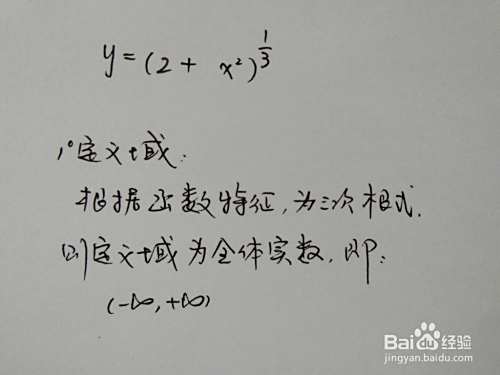 y=(2+ x²)^{1/3}
1°定义域:
根据函数特征,为三次根式.
则定义域为全体实数,即:
(-∞,+∞)
Bai百度经验
jingyan.baidu.com